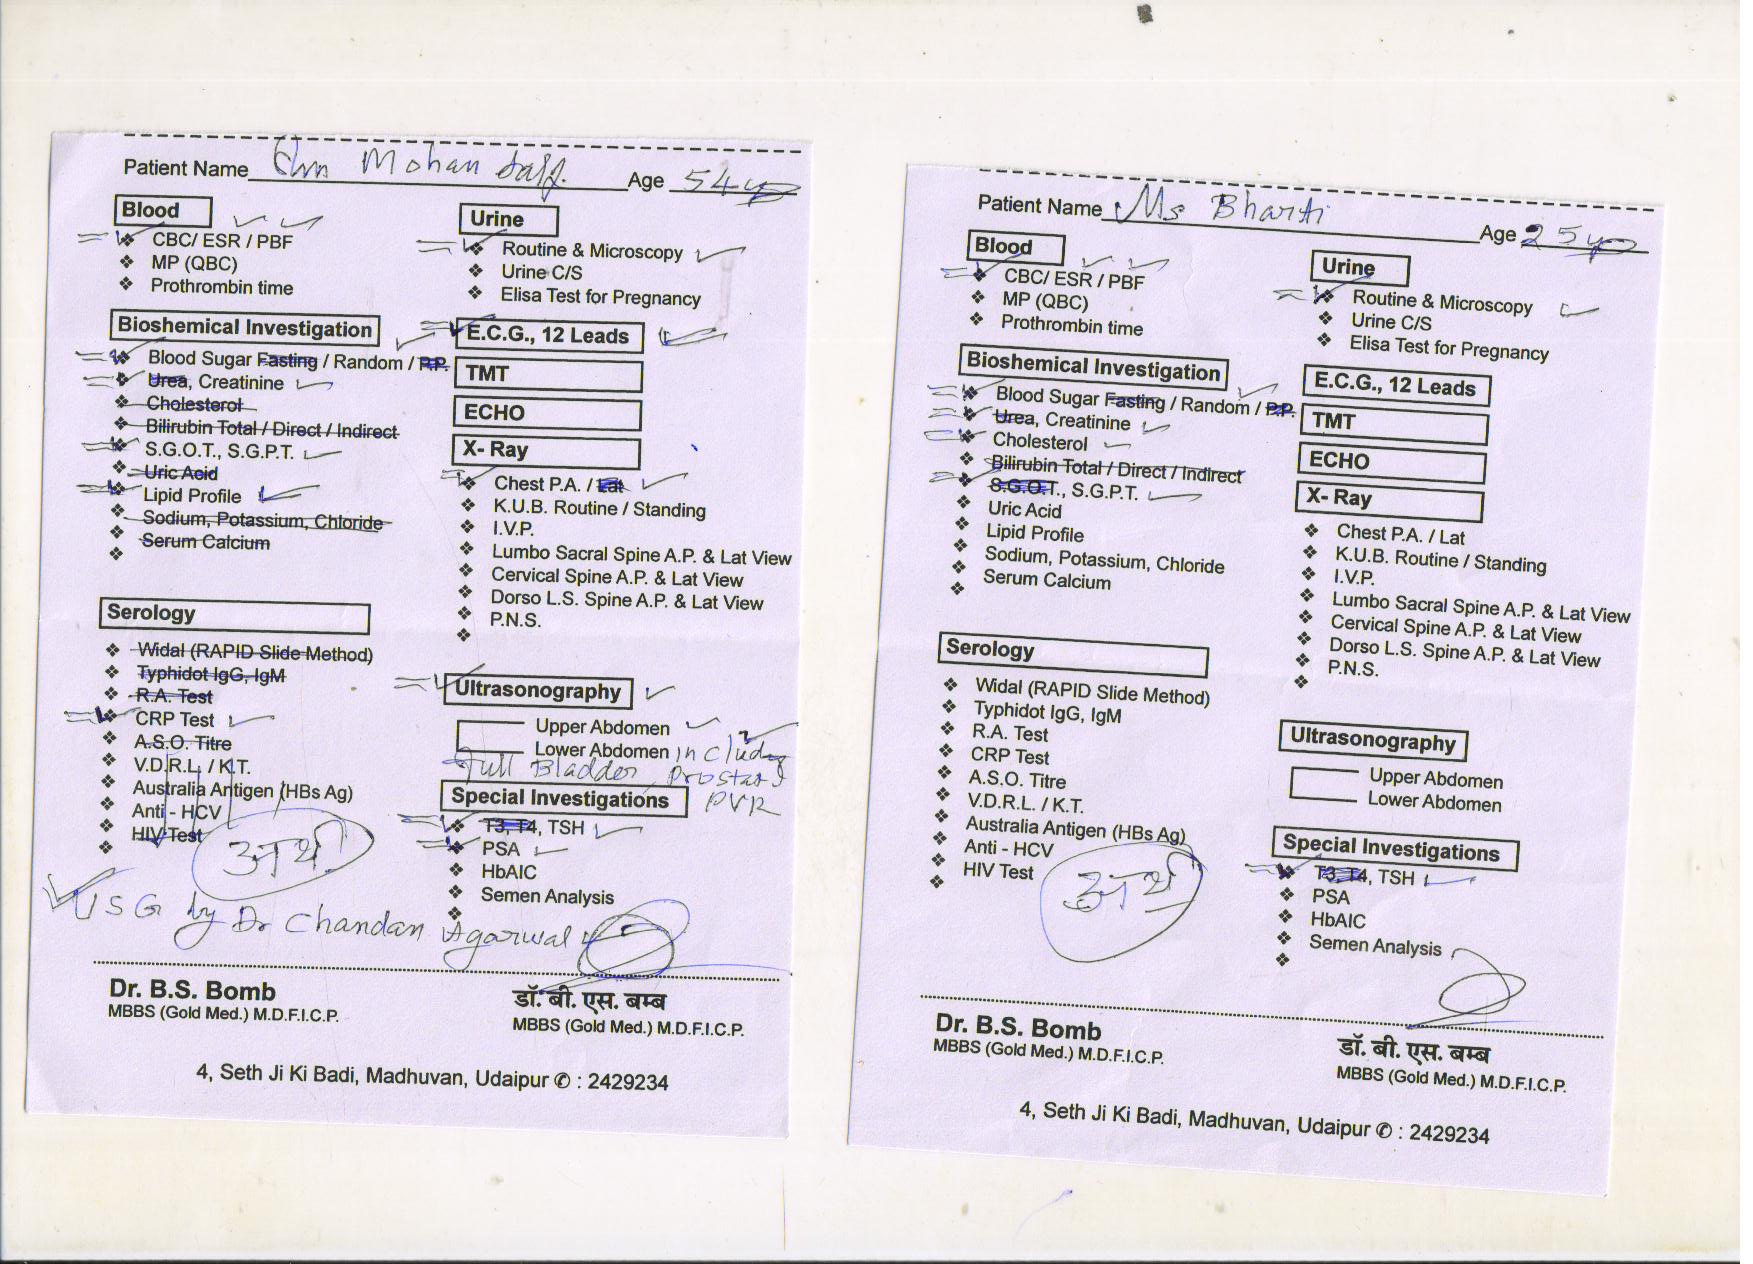 Patient Name Mohan Age 54
Blood
CBC/ ESR / PBF
MP (QBC)
Prothrombin time
Bioshemical Investigation
Blood Sugar Fasting / Random / P.P.
Urea, Creatinine
Cholesterol
Bilirubin Total / Direct / Indirect
S.G.O.T., S.G.P.T.
Uric Acid
Lipid Profile
Sodium, Potassium, Chloride
Serum Calcium
Serology
Widal (RAPID Slide Method)
Typhidot IgG, IgM
R.A. Test
CRP Test
A.S.O. Titre
V.D.R.L. / K.T.
Australia Antigen (HBs Ag)
Anti - HCV
HIV Test
Urine
Routine & Microscopy
Urine C/S
Elisa Test for Pregnancy
E.C.G., 12 Leads
TMT
ECHO
X- Ray
Chest P.A. / Lat
K.U.B. Routine / Standing
I.V.P.
Lumbo Sacral Spine A.P. & Lat View
Cervical Spine A.P. & Lat View
Dorso L.S. Spine A.P. & Lat View
P.N.S.
Ultrasonography
Upper Abdomen
Lower Abdomen including
Full Bladder, Prostate
PVR
Special Investigations
T3, T4, TSH
PSA
HbAIC
Semen Analysis
USG by Dr Chandan Agarwal
Dr. B.S. Bomb
MBBS (Gold Med.) M.D.F.I.C.P.
डॉ. बी. एस. बम्ब
MBBS (Gold Med.) M.D.F.I.C.P.
4, Seth Ji Ki Badi, Madhuvan, Udaipur ✆ : 2429234
Patient Name Ms Bharti Age 25
Blood
CBC/ ESR / PBF
MP (QBC)
Prothrombin time
Bioshemical Investigation
Blood Sugar Fasting / Random / P.P.
Urea, Creatinine
Cholesterol
Bilirubin Total / Direct / Indirect
S.G.O.T., S.G.P.T.
Uric Acid
Lipid Profile
Sodium, Potassium, Chloride
Serum Calcium
Serology
Widal (RAPID Slide Method)
Typhidot IgG, IgM
R.A. Test
CRP Test
A.S.O. Titre
V.D.R.L. / K.T.
Australia Antigen (HBs Ag)
Anti - HCV
HIV Test
Urine
Routine & Microscopy
Urine C/S
Elisa Test for Pregnancy
E.C.G., 12 Leads
TMT
ECHO
X- Ray
Chest P.A. / Lat
K.U.B. Routine / Standing
I.V.P.
Lumbo Sacral Spine A.P. & Lat View
Cervical Spine A.P. & Lat View
Dorso L.S. Spine A.P. & Lat View
P.N.S.
Ultrasonography
Upper Abdomen
Lower Abdomen
Special Investigations
T3, T4, TSH
PSA
HbAIC
Semen Analysis
Dr. B.S. Bomb
MBBS (Gold Med.) M.D.F.I.C.P.
डॉ. बी. एस. बम्ब
MBBS (Gold Med.) M.D.F.I.C.P.
4, Seth Ji Ki Badi, Madhuvan, Udaipur ✆ : 2429234